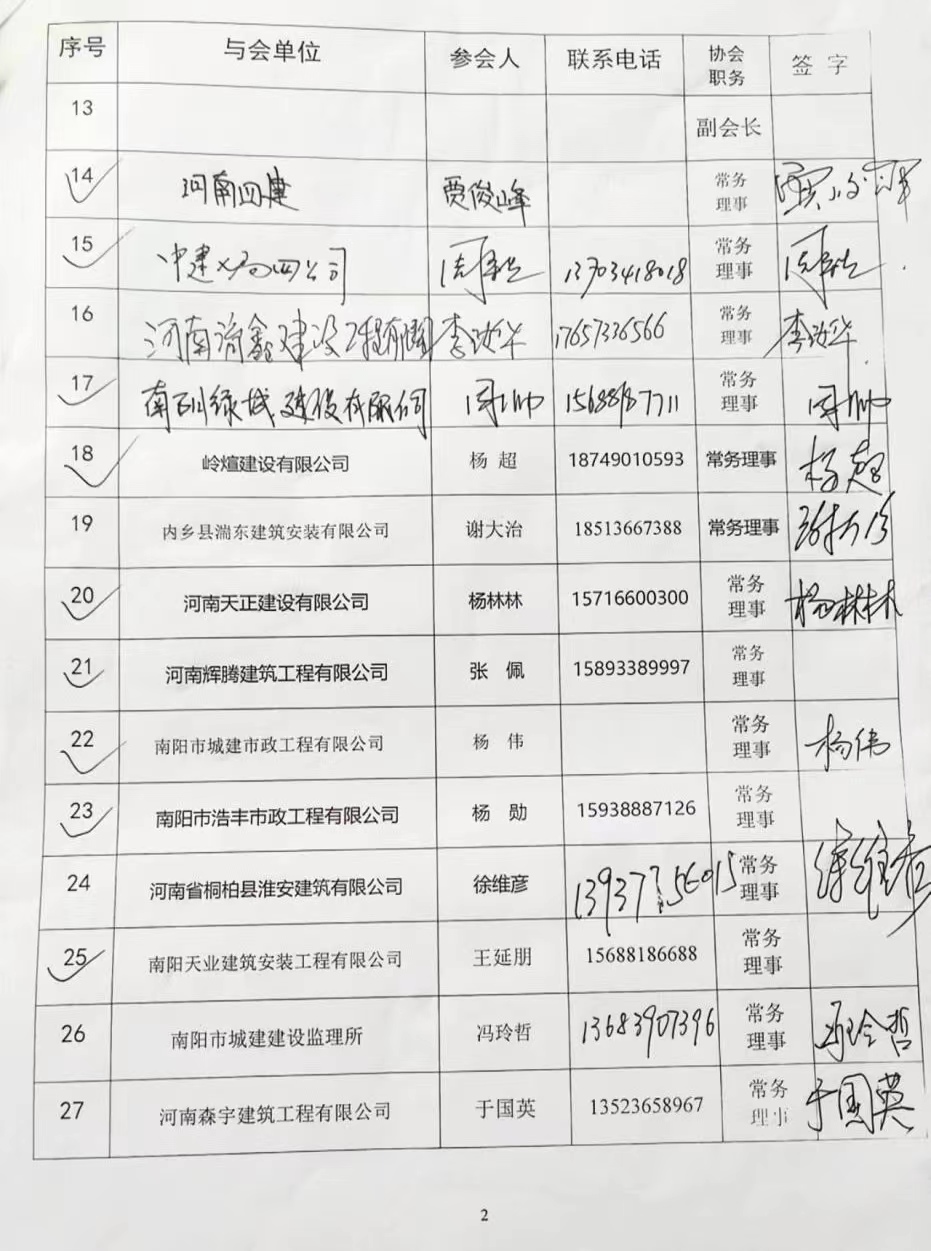 序号 与会单位 参会人 联系电话 协会职务 签 字
13 副会长
14 河南四建 贾俊峰 常务理事
15 中建七局四公司 13703418018 常务理事
16 河南 建设工程有限 李 华 17657336566 常务理事 李 华
17 南 绿城建设有限公司 周帅 15688187711 常务理事 周帅
18 岭煊建设有限公司 杨 超 18749010593 常务理事 杨超
19 内乡县湍东建筑安装有限公司 谢大治 18513667388 常务理事 谢大治
20 河南天正建设有限公司 杨林林 15716600300 常务理事 杨林林
21 河南辉腾建筑工程有限公司 张 佩 15893389997 常务理事
22 南阳市城建市政工程有限公司 杨 伟 常务理事 杨伟
23 南阳市浩丰市政工程有限公司 杨 勋 15938887126 常务理事
24 河南省桐柏县淮安建筑有限公司 徐维彦 13937756015 常务理事 徐维彦
25 南阳天业建筑安装工程有限公司 王延朋 15688186688 常务理事
26 南阳市城建建设监理所 冯玲哲 13683907396 常务理事 冯玲哲
27 河南森宇建筑工程有限公司 于国英 13523658967 常务理事 于国英
2